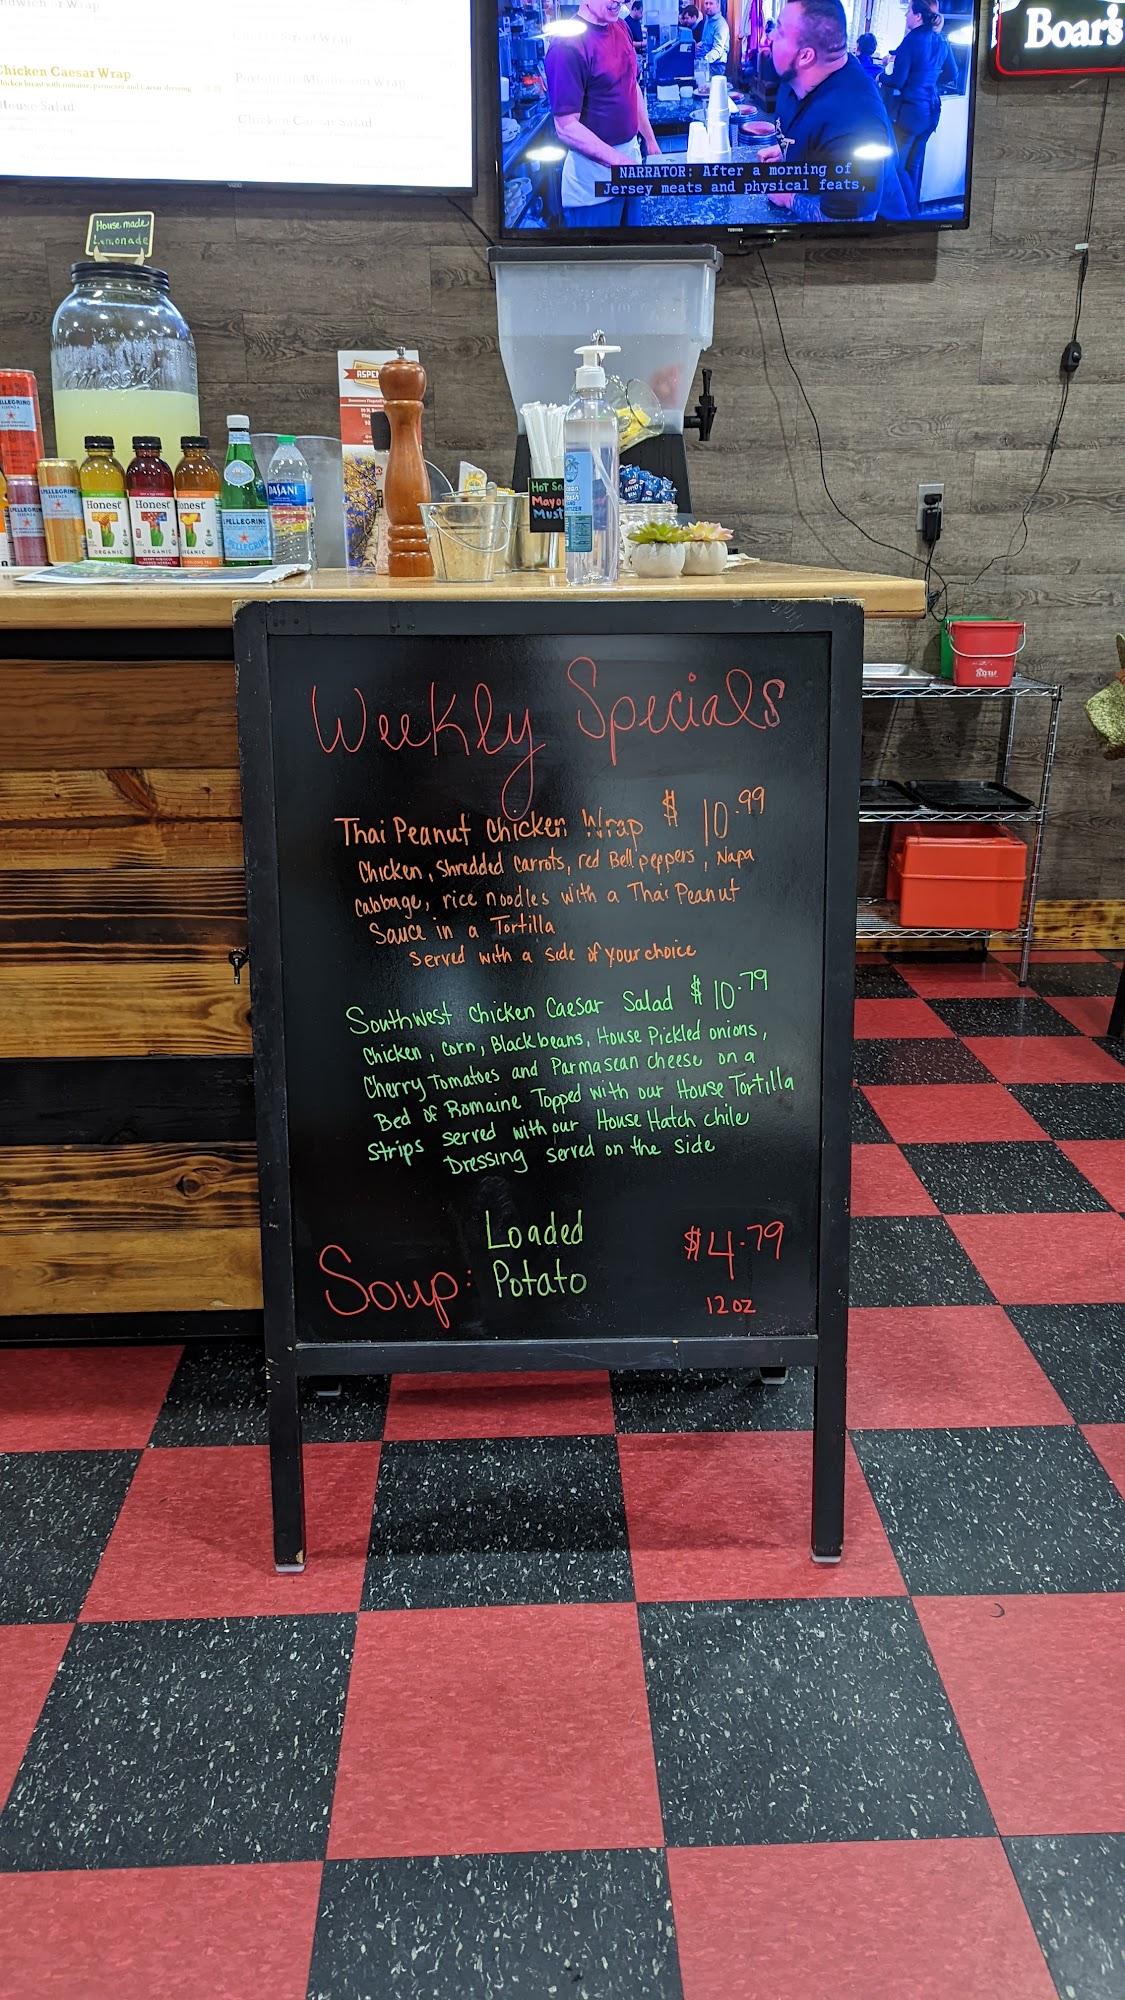 Chicken Caesar Wrap
chicken breast with romaine, parmesan and Caesar dressing
House Salad
Portobello Mushroom Wrap
Chicken Caesar Salad
VIZIO
NARRATOR: After a morning of
Jersey meats and physical feats,
TOSHIBA
Boar's
House made
Lemonade
PELLEGRINO
ESSENZA
S.PELLEGRINO
ESSENZA
Honest
ORGANIC
Honest
ORGANIC
Honest
S.PELLEGRINO
DASANI
ASPEN
Hot Sa
Mayo
Must
Weekly Specials
Thai Peanut Chicken Wrap $10.99
Chicken, Shredded Carrots, red Bell peppers, Napa
Cabbage, rice noodles with a Thai Peanut
Sauce in a Tortilla
Served with a side of your choice
Southwest Chicken Caesar Salad $10.79
Chicken, Corn, Black beans, House Pickled onions,
Cherry Tomatoes and Parmasean cheese on a
Bed of Romaine Topped with our House Tortilla
Strips served with our House Hatch chile
Dressing served on the side
Soup: Loaded
Potato
$4.79
12oz